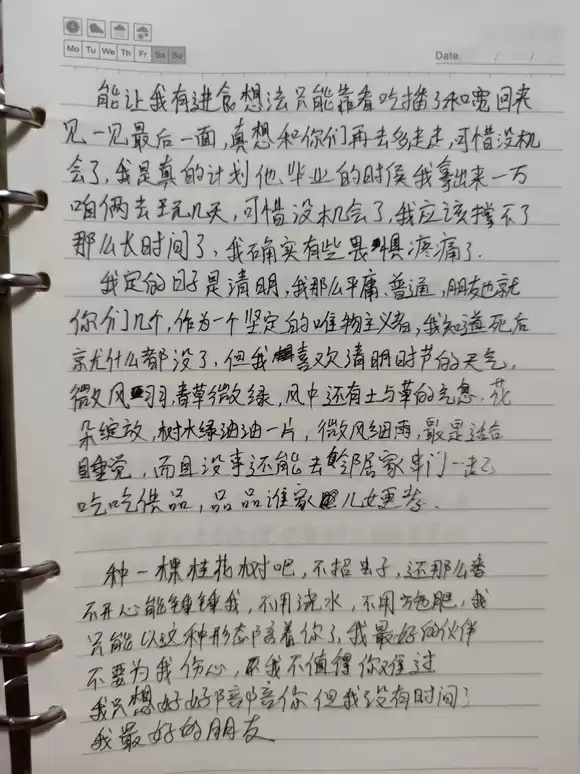 Mo Tu We Th Fr Sa Su
Date. / /
能让我有进食想法只能靠看吃播了和宽回来
见一见最后一面,真想和你们再去多走走,可惜没机
会了,我是真的计划他毕业的时候我拿出来一万
咱俩去玩几天,可惜没机会了,我应该撑不了
那么长时间了,我确实有些畏惧疼痛了.
我定的日子是清明,我那么平庸、普通,朋友也就
你们几个,作为一个坚定的唯物主义者,我知道死后
就什么都没了,但我喜欢清明时节的天气,
微风习习,青草微绿,风中还有土与草的气息.花
朵绽放,树木绿油油一片,微风细雨,最是适合
睡觉,而且没事还能去邻居家串门一起
吃吃供品,品品谁家儿女更孝.
种一棵桂花树吧,不招虫子,还那么香
不开心能锤锤我,不用浇水,不用施肥,我
只能以这种形态陪着你了,我最好的伙伴
不要为我伤心,我不值得你难过
我只想好好陪陪你但我没有时间了
我最好的朋友